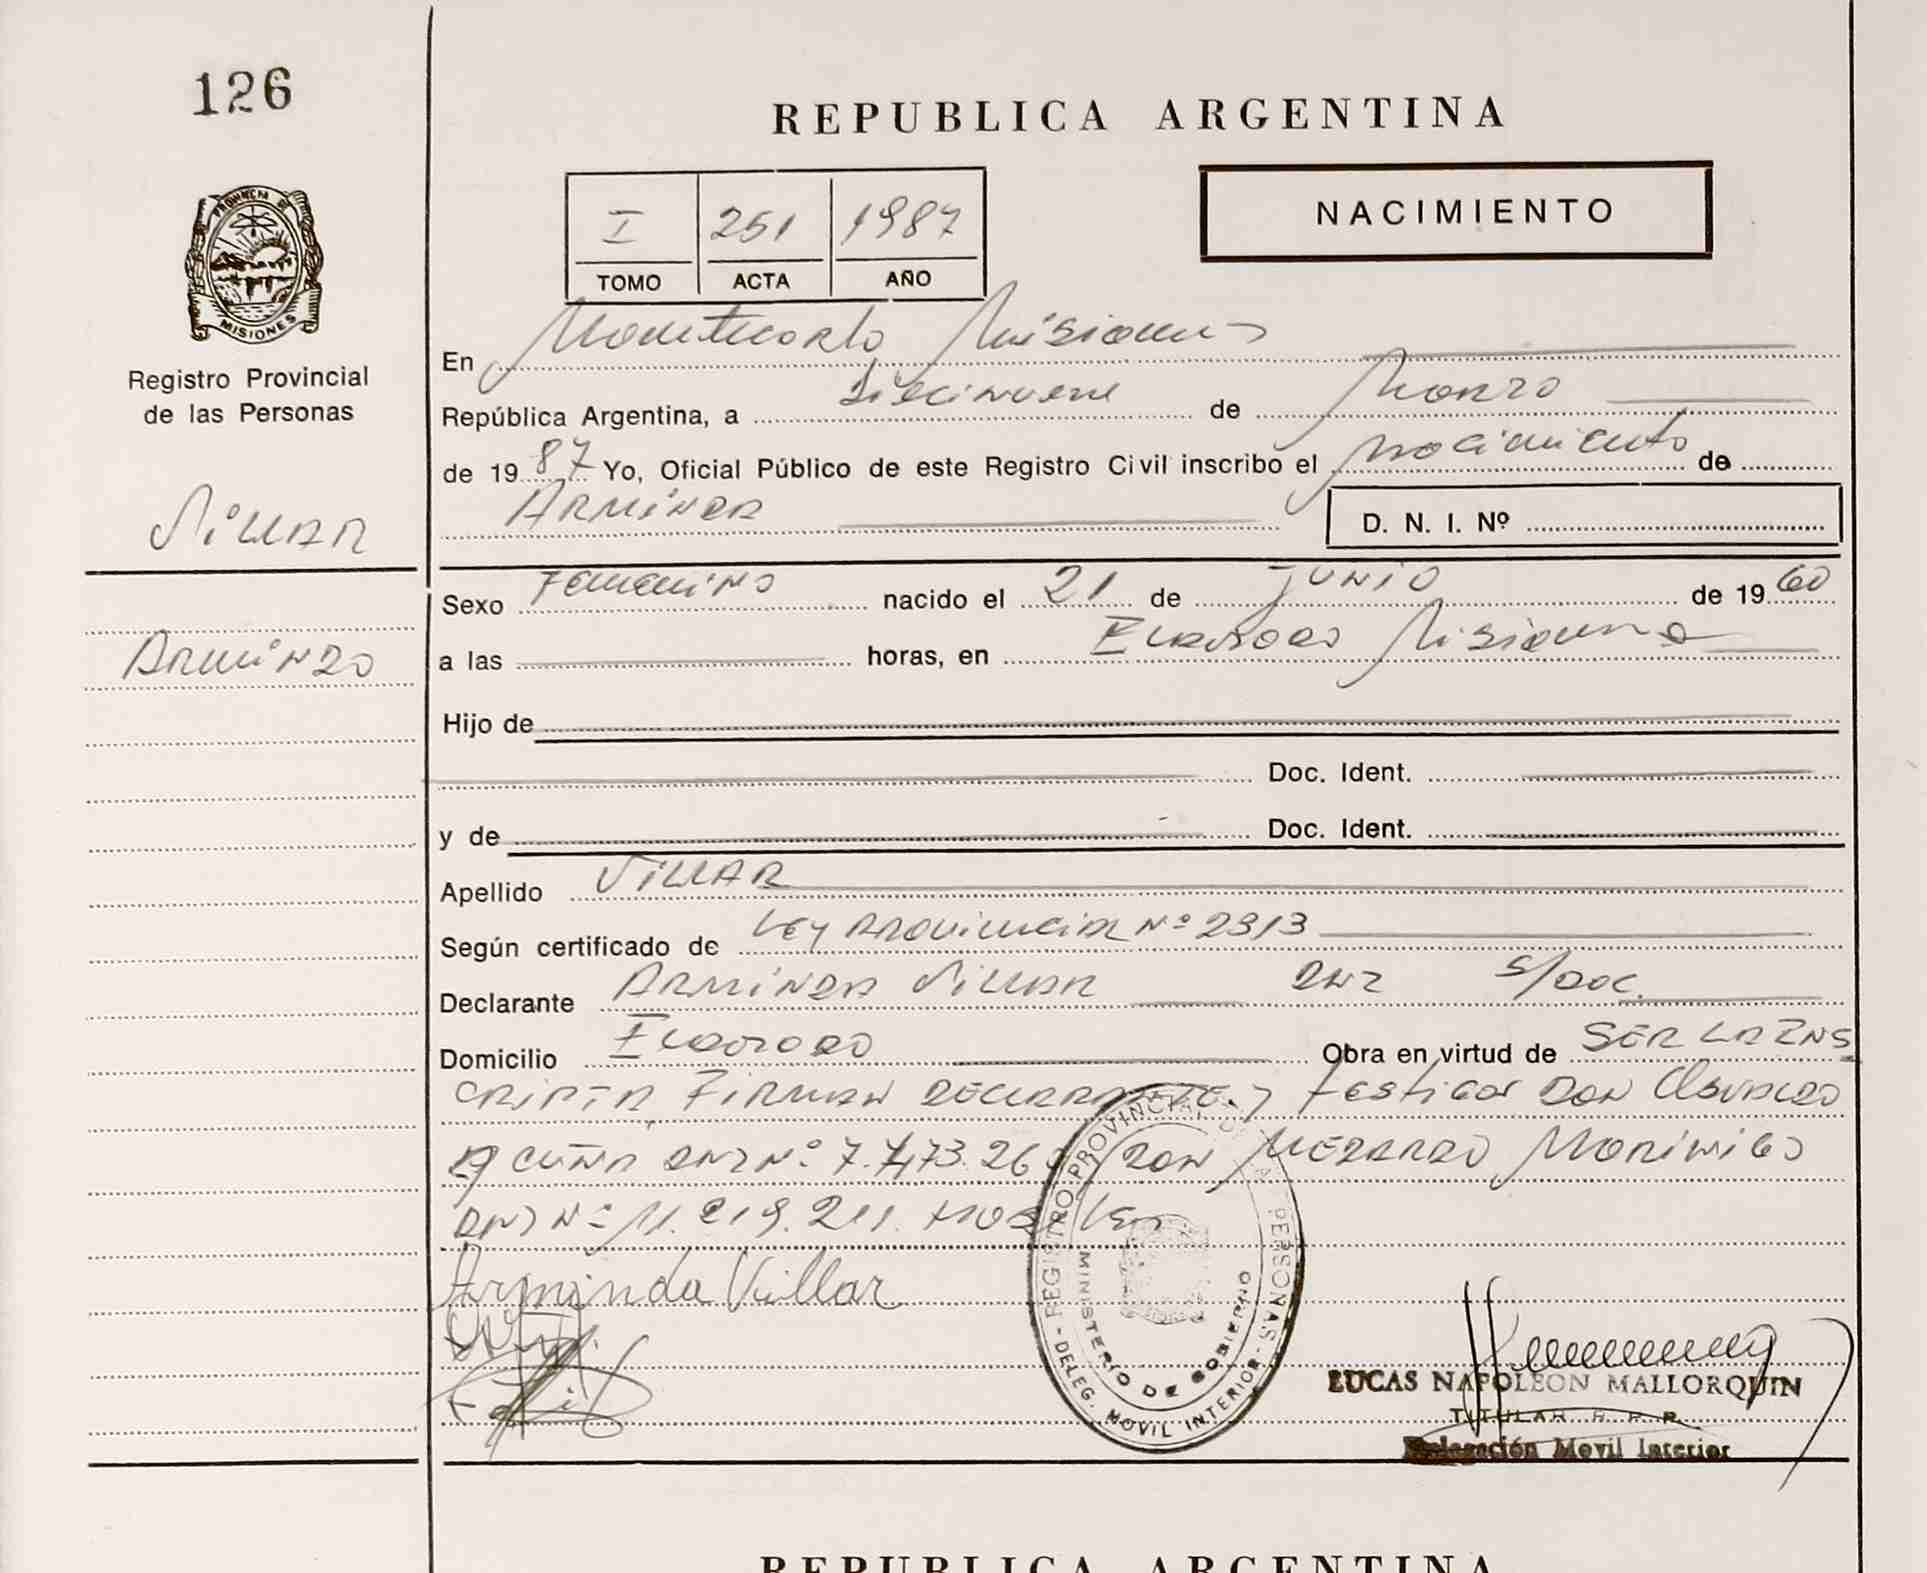 126
REPUBLICA ARGENTINA
I 251 1987
TOMO ACTA AÑO
NACIMIENTO
PROVINCIA DE
MISIONES
Registro Provincial
de las Personas
En Montecarlo Misiones
República Argentina, a Diecinueve de Marzo
de 1987 Yo, Oficial Público de este Registro Civil inscribo el nacimiento de
Arminda D. N. I. Nº
VillAR
Sexo Femenino nacido el 21 de Junio de 1960
Arminda
a las horas, en Eldorado Misiones
Hijo de
Doc. Ident.
y de Doc. Ident.
Apellido VillAR
Según certificado de Ley Provincial Nº 2313
Declarante Arminda Villar DNI S/Doc.
Domicilio Eldorado Obra en virtud de SER LA INS
CRIPTA FIRMAN DECLARANTE y Testigos DON Osvaldo
Acuña DNI Nº 7.473.26 y DON MEDARDO
DNI Nº 11.219.211.
Arminda Villar
REGISTRO PROVINCIAL DE LAS PERSONAS
MINISTERIO DE GOBIERNO
DELEG. MOVIL INTERIOR
LUCAS NAPOLEON MALLORQUIN
TITULAR R. P. P.
Delegación Movil Interior
REPUBLICA ARGENTINA